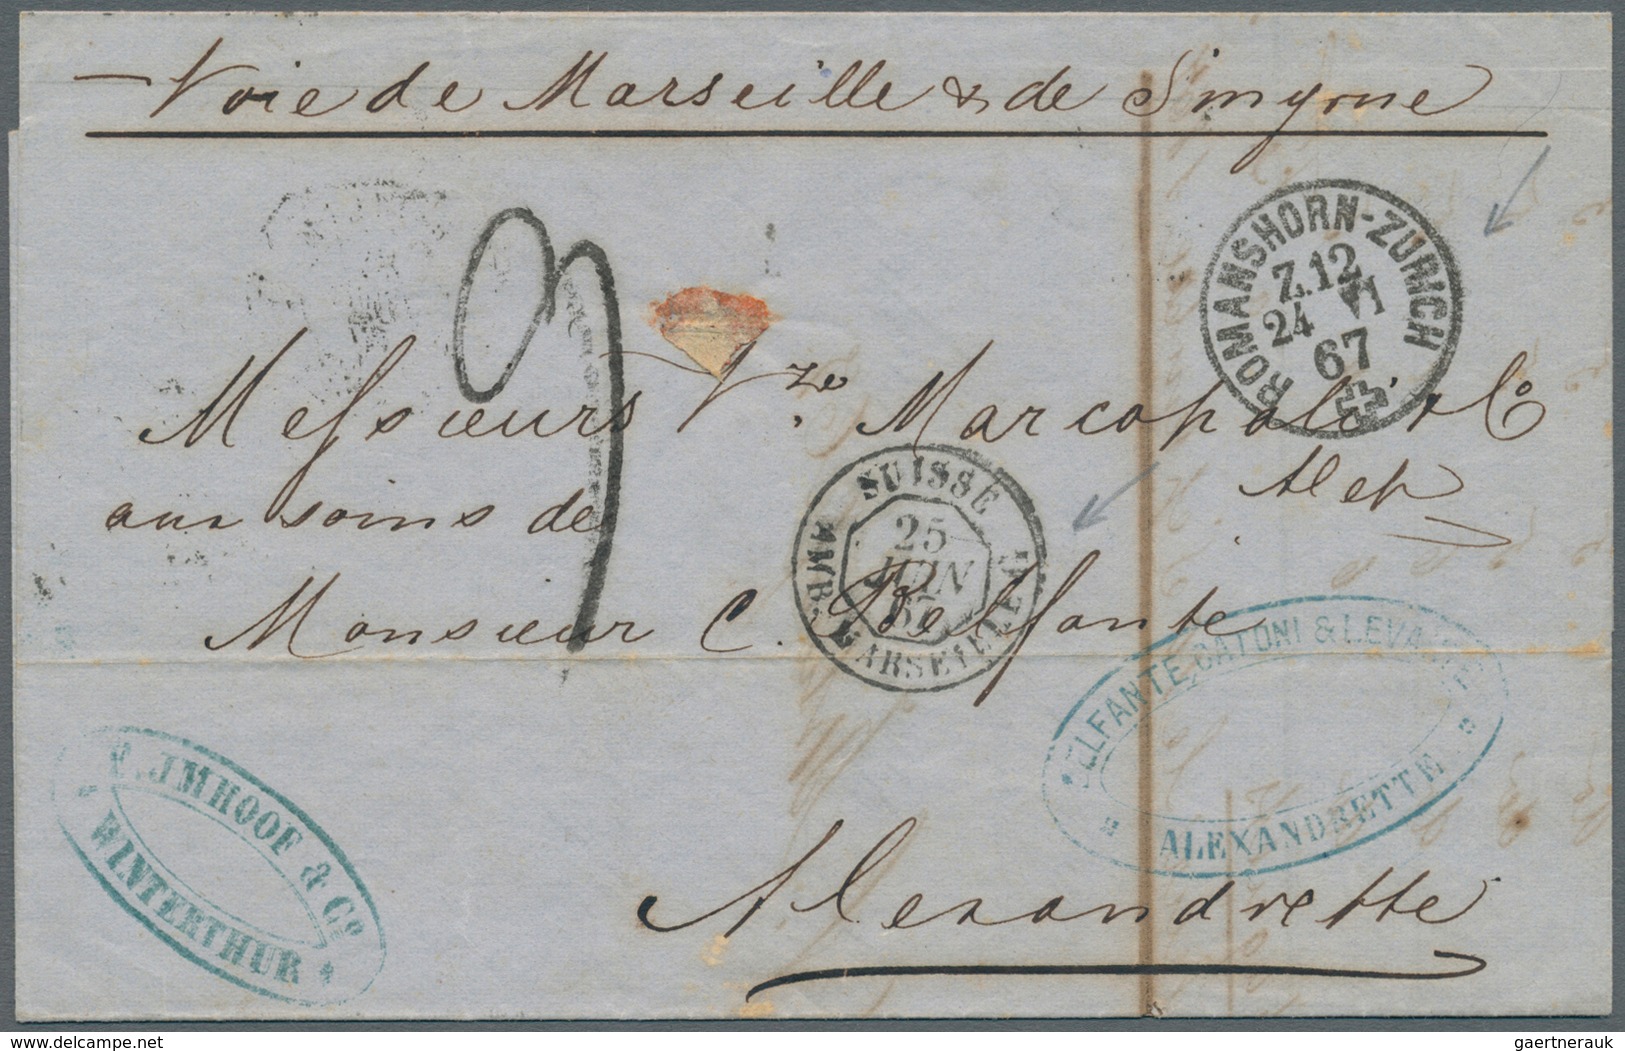 Voie de Marseille & de Smyrne
ROMANSHORN-ZÜRICH
Z.12
24 VI
67
9
Messieurs Vzo Marcopoli & Co
Alep
aux soins de
SUISSE
25
JUIN
67
AMB. MARSEILLE
Monsieur C. Belfante
BELFANTE, CATONI & LEVANTE
ALEXANDRETTE
F. IMHOOF & Co
WINTERTHUR
Alexandrette
www.delcampe.net
gaertnerauk